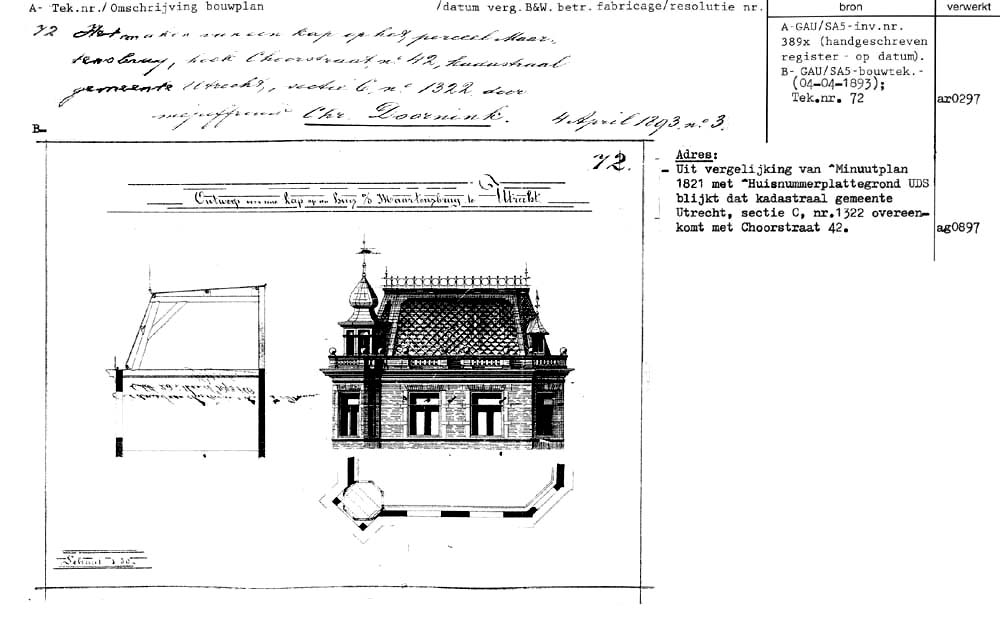 A- Tek.nr./Omschrijving bouwplan
/datum verg.B&W. betr. fabricage/resolutie nr.
bron
verwerkt
72 Het maken van een kap op het perceel Maar-
tensbrug, hoek Choorstraat nº 42, kadastraal
gemeente Utrecht, sectie C. nº 1322 door
mejuffrouw Chr. Doornink. 4 April 1893 nº 3.
A-GAU/SA5-inv.nr.
389x (handgeschreven
register - op datum).
B- GAU/SA5-bouwtek.-
(04-04-1893);
Tek.nr. 72
ar0297
B-
72.
Ontwerp van eene kap op een Huis a/d Maartensbrug te Utrecht
Adres:
- Uit vergelijking van ^Minuutplan
1821 met ^Huisnummerplattegrond UDS
blijkt dat kadastraal gemeente
Utrecht, sectie C, nr.1322 overeen-
komt met Choorstraat 42.
ag0897
Schaal